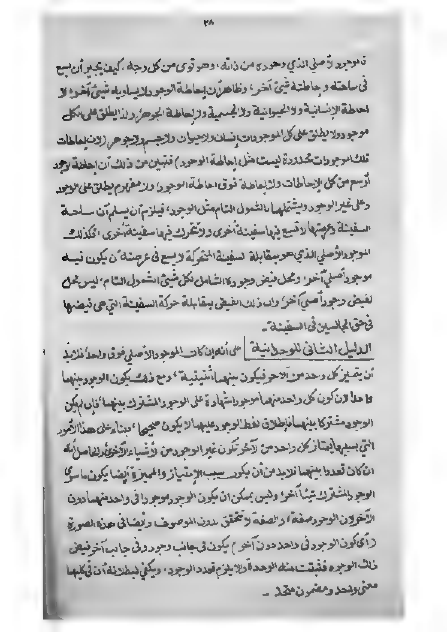 ٢٨
فالموجود الأصلي الذي وجوده من ذاته، وهو قوي من كل وجه، كيف يجيز أن يسع
في ساحته وإحاطته شيئ آخر، وظاهر أن إحاطة الوجود لا يساويه شيئ آخر، لا
إحاطة الإنسانية ولا الحيوانية ولا الجسمية ولا إحاطة الجوهر، ولذا يطلق على كل
موجود ولا يطلق على كل الموجودات إنسان ولا حيوان ولا جسم ولا جوهر، لأن إحاطات
تلك الموجودات محدودة ليست مثل إحاطة الوجود، فتبين من ذلك أن إحاطة وجود
أوسع من كل الإحاطات ولا إحاطة فوق إحاطة الوجود، ولا مفهوم يطلق على الوجود
وعلى غير الوجود ويشتملها بالشمول التام مثل الوجود، فيلزم أن يسلم أن ساحة
السفينة وعرصتها لا تسع فيها سفينة أخرى ولا تتحرك فيها سفينة أخرى، فكذلك
الموجود الأصلي الذي هو بمقابلة السفينة المتحركة لا يسع في عرصته أن يكون فيه
موجود أصلي آخر، ومحل فيض وجوده الشامل لكل شيئ الشمول التام، ليس بمحل
لفيض وجود أصلي آخر، لأن ذلك الفيض بمقابلة حركة السفينة التي هي فيضها
في حق الجالسين في السفينة۔
الدليل الثاني للوحدانية على أنه إن كان الموجود الأصلي فوق واحد فلا بد
أن يتميز كل واحد من الآخر فيكون بينهما إثنينية، ومع ذلك يكون الوجود بينهما
واحدا لأن كون كل واحد منهما موجودا شهادة على الوجود المشترك بينهما، فإن لم يكن
الوجود مشتركا بينهما فإطلاق لفظ الوجود عليهما لا يكون صحيحا، بناء على هذا الأمور
التي بسببها يمتاز كل واحد من آخر تكون غير الوجود من الأشياء الأخرى، والحاصل أنه
إن كان تعددا بينهما فلا بد من أن يكون سبب الإمتياز والمميزة أيضا يكون ما سوى
الوجود المشترك شيئا آخر، وليس يمكن أن يكون الوجود موجودا في واحد منهما دون
الآخر لأن الوجود صفة، والصفة لا تتحقق بدون الموصوف وأيضا في هذه الصورة
(أي كون الوجود في واحد دون آخر) يكون في جانب وجود وفي جانب آخر فيض
ذلك الوجود فبقيت هذه الوحدة ولا يلزم تعدد الوجود، ويكفي لبطلانه أن في كليهما
معنى واحد ومضمون متحد۔